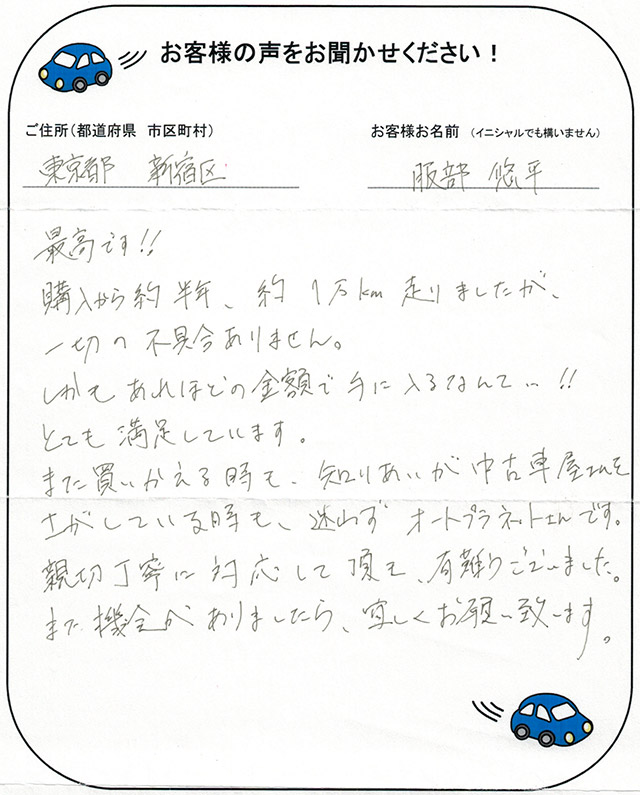 お客様の声をお聞かせください！
ご住所（都道府県 市区町村）
お客様お名前 （イニシャルでも構いません）
東京都 新宿区
服部 悠平
最高です!!
購入から約半年、約1万km走りましたが、
一切の不具合ありません。
しかもあれほどの金額で手に入るなんて…!!
とても満足しています。
また買いかえる時も、知りあいが中古車屋さんを
さがしている時も、迷わず オートプラネットさんです。
親切丁寧に対応して頂き、有難うございました。
また機会がありましたら、宜しくお願い致します。